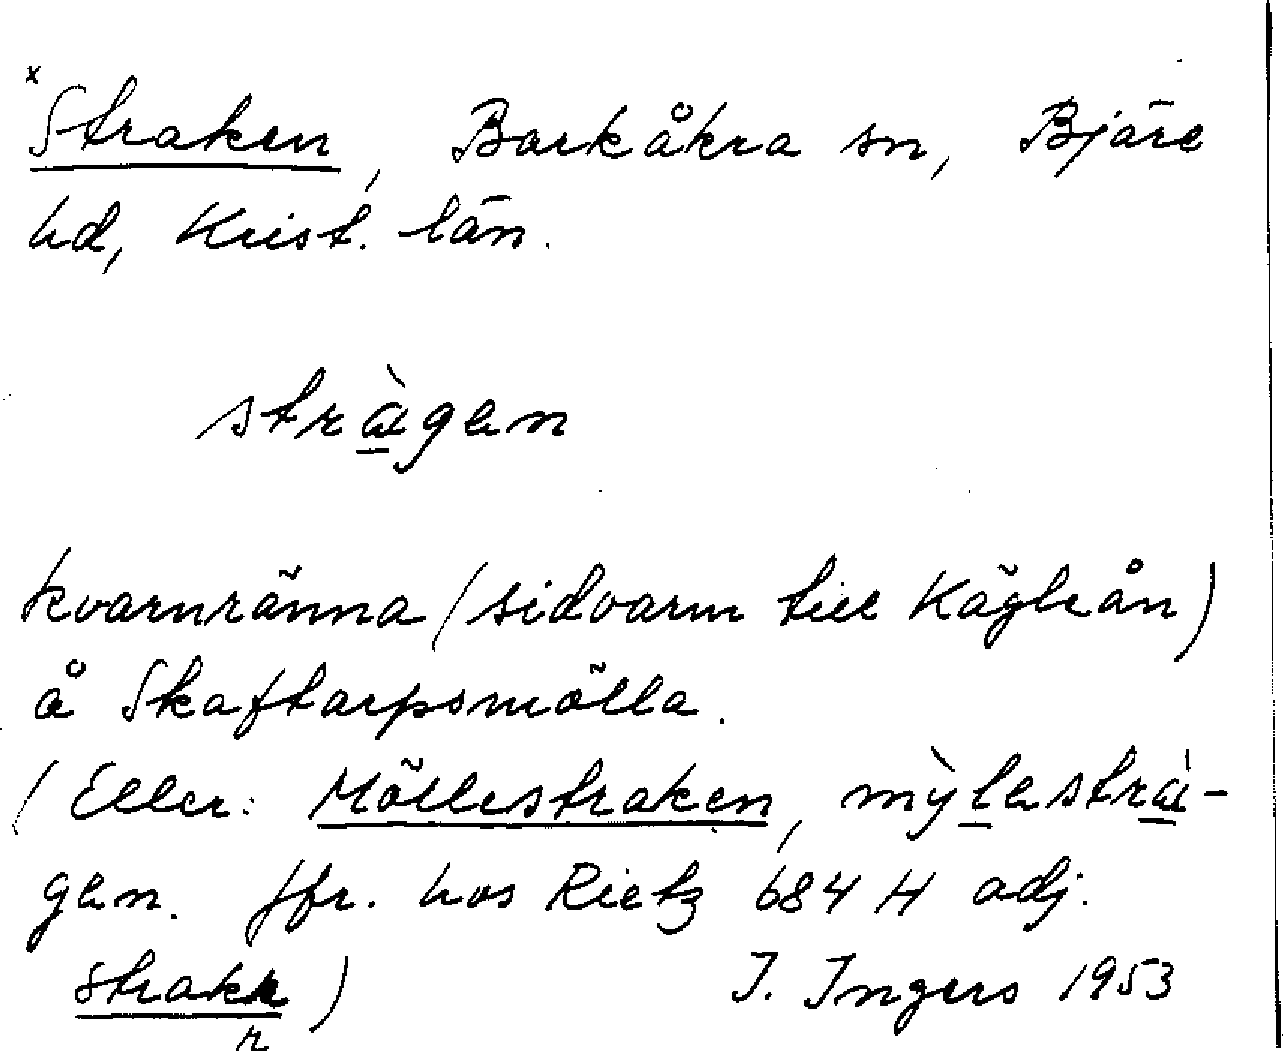 x Straken, Barkåkra sn, Bjäre
hd, Krist. län.
stràgen
kvarnränna (sidoarm till Kägleån)
å Skaftarpsmölla.
(Eller: Möllestraken, mỳlestrà-
gen. Jfr. hos Rietz 684 H adj.
strakk)
r
I. Ingers 1953